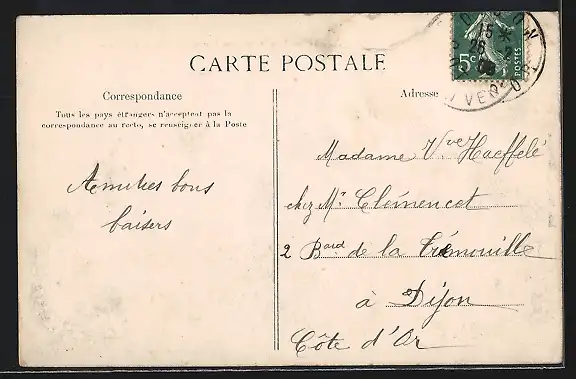 CARTE POSTALE
Correspondance
Tous les pays étrangers n'acceptent pas la
correspondance au recto, se renseigner à la Poste
Adresse
5c
POSTES
15
26
Amitiés bons
baisers
Madame Vve Haeffelé
chez Mr Clémencet
2 Bard de la Trémouille
à Dijon
Côte d'Or